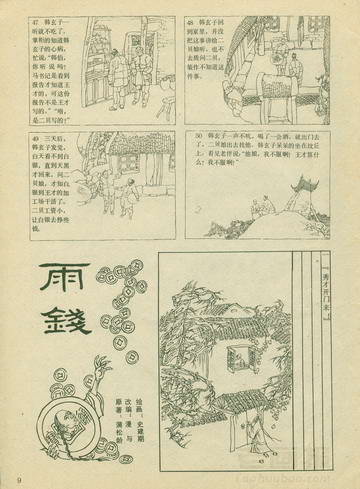 47 韩玄子一
听就不吃了,
掌柜的知道韩
玄子的心病,
忙说,"韩伯,
你听说吗?
马书记是看到
报告才知道王
才的,可这份
报告不是王才
写的。""啥,
是二贝写的!"
48 韩玄子回
到家里,并没
把这事讲给二
贝娘听,也不
去质问二贝,
装作不知道这
件事。
49 三天后,
韩玄子发觉,
白天看不到白
银,直到天黑
才回来,问二
贝娘,才知白
银到王才的加
工场干活了。
二贝工资小,
让白银去挣些
钱。
50 韩玄子一声不吭,喝了一会酒,就出门去
了,二贝娘出去找他,韩玄子呆呆的坐在坟丘
上,看见老伴说:"他娘,我不服啊!王才算什
么?我不服啊!"
雨
錢
原著:蒲松龄
改编:漫与
绘画:史建期
『秀才开门来』
9